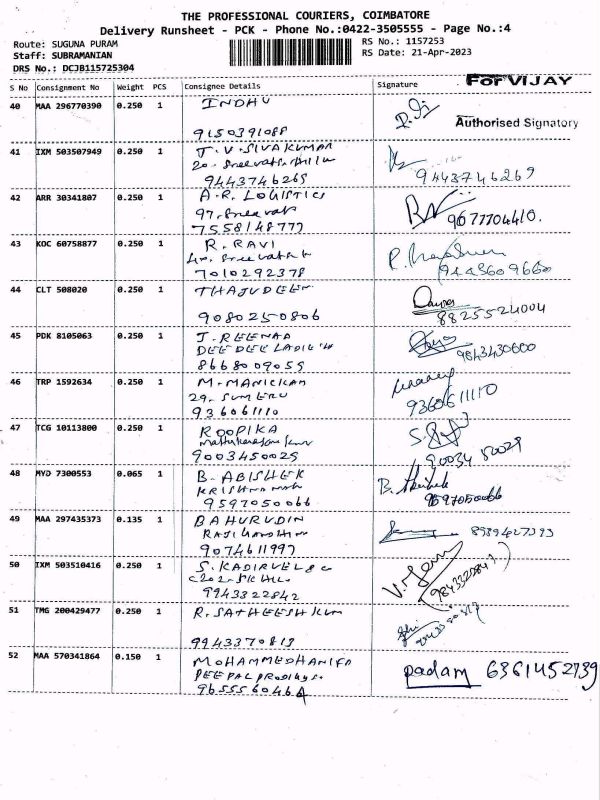 THE PROFESSIONAL COURIERS, COIMBATORE
Delivery Runsheet - PCK - Phone No.:0422-3505555 - Page No.:4
Route: SUGUNA PURAM
RS No.: 1157253
Staff: SUBRAMANIAN
RS Date: 21-Apr-2023
DRS No.: DCJB115725304
S No Consignment No Weight PCS Consignee Details Signature
For VIJAY
Authorised Signatory
40 MAA 296770390 0.250 1 INDHU
9150391088
41 IXM 503507949 0.250 1 J.V. SIVAKUMAR
20-
9443746269 9443746269
42 ARR 30341807 0.250 1 A.R. LOGISTICS
97,
7558148777 9677704410.
43 KOC 60758877 0.250 1 R. RAVI
7010292378 9443609660
44 CLT 508020 0.250 1 THAJUDEEN
9080250806 8825524004
45 PDK 8105063 0.250 1 J. REENAA
DEE DEE
8668009055 9843430600
46 TRP 1592634 0.250 1 M. MANICKAM
29, SUMERU
936061110 9360611110
47 TCG 10113800 0.250 1 ROOPIKA
9003450029 90034 50029
48 MYD 7300553 0.065 1 B. ABISHEK
KRISHNA
9597050066 9597050066
49 MAA 297435373 0.135 1 BAHURUDIN
RAJIGANDHI
9074611997
50 IXM 503510416 0.250 1 S. KADIRVEL & Co
9943322842
51 TMG 200429477 0.250 1 R. SATHEESH KUM
9943370813
52 MAA 570341864 0.150 1 MOHAMMED HANIFA
PEEPAL
9655560464 padam 6361452739